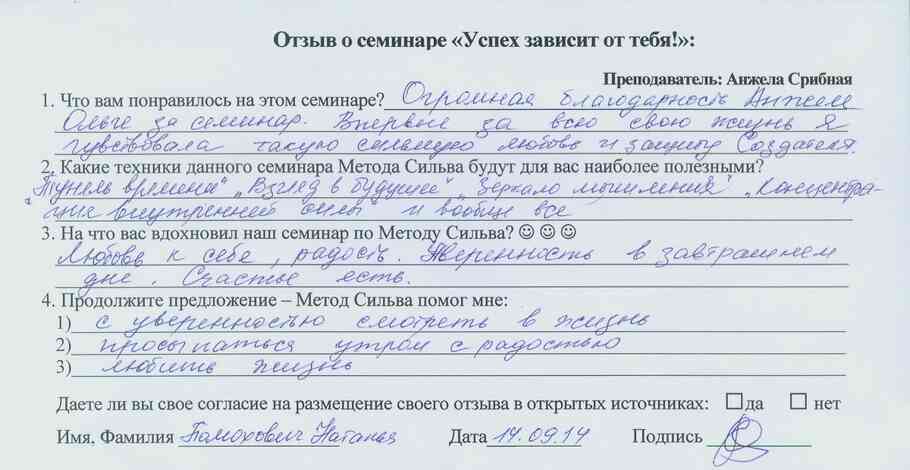 Отзыв о семинаре «Успех зависит от тебя!»:
Преподаватель: Анжела Срибная
1. Что вам понравилось на этом семинаре? Огромная благодарность Анжеле
Ольге за семинар. Впервые за всю свою жизнь я
чувствовала такую сильную любовь и защиту Создателя.
2. Какие техники данного семинара Метода Сильва будут для вас наиболее полезными?
"Тунель времени" "Взгляд в будущее" "Зеркало мышления" "Концентра-
ция внутренней силы и вообще все
3. На что вас вдохновил наш семинар по Методу Сильва? ☺ ☺ ☺
Любовь к себе, радость. Уверенность в завтрашнем
дне. Счастье есть.
4. Продолжите предложение – Метод Сильва помог мне:
1) с уверенностью смотреть в жизнь
2) просыпаться утром с радостью
3) любить жизнь
Даете ли вы свое согласие на размещение своего отзыва в открытых источниках: □ да □ нет
Имя, Фамилия Наталья Дата 14.09.14 Подпись